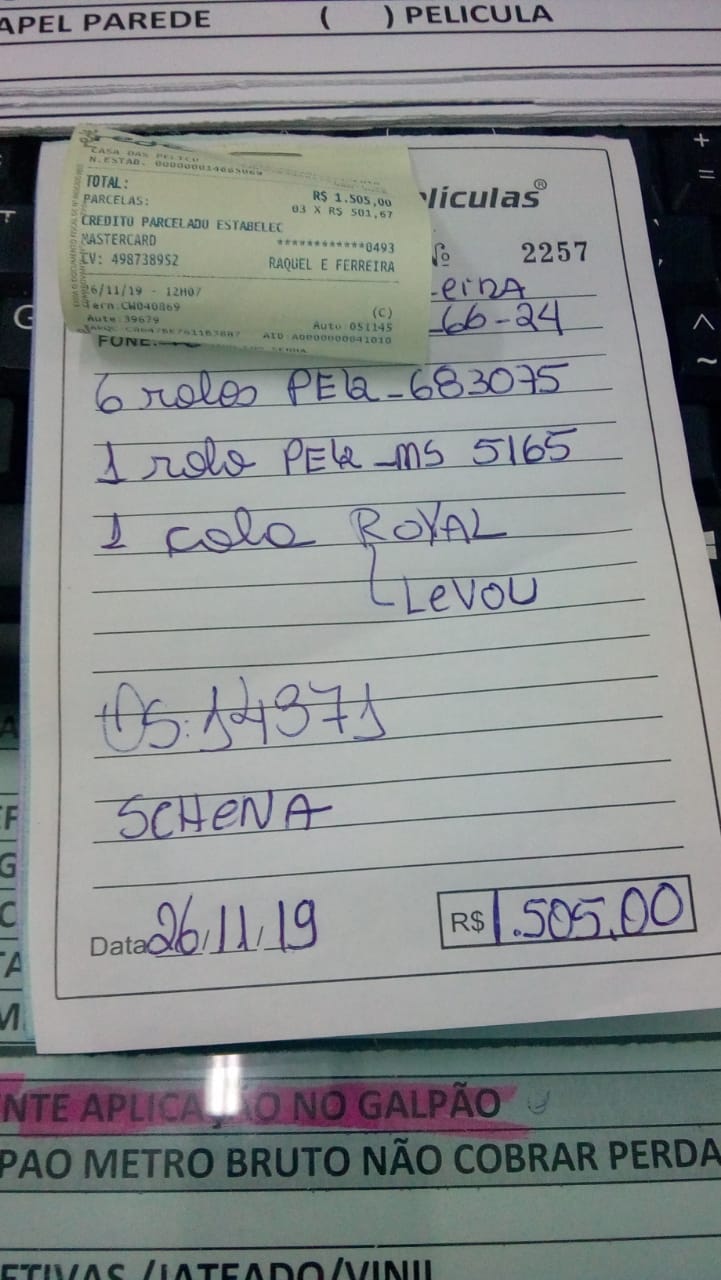 APEL PAREDE ( ) PELICULA
CASA DAS
N.ESTAB.
TOTAL: R$ 1.505,00
PARCELAS: 03 X R$ 501,67
CREDITO PARCELADO ESTABELEC
MASTERCARD ************0493
CV: 498738952 RAQUEL E FERREIRA
26/11/19 - 12H07
Term.CW040869 (C)
Aute:39679 Auto:051145
AID:A0000000041010
lículas®
Nº 2257
eira
66-24
FONE:
6 rolos PEK-683075
1 rolo PEK-MS 5165
1 cola ROYAL
LEVOU
OS:14371
SCHENA
Data 26/11/19
R$ 1.505,00
NTE APLICAÇÃO NO GALPÃO
PAO METRO BRUTO NÃO COBRAR PERDA
ETIVAS /JATEADO/VINIL